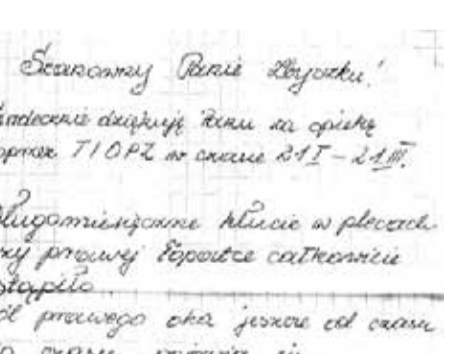 Szanowny Panie Zbyszku!
erdecznie dziękuję Panu za opiekę
oprzez TIOPZ w czasie 21 I – 21 III.
ługomiesięczne kłucie w plecach
rzy prawej łopatce całkowicie
stąpiło
ól prawego oka jeszcze od czasu
o czasu